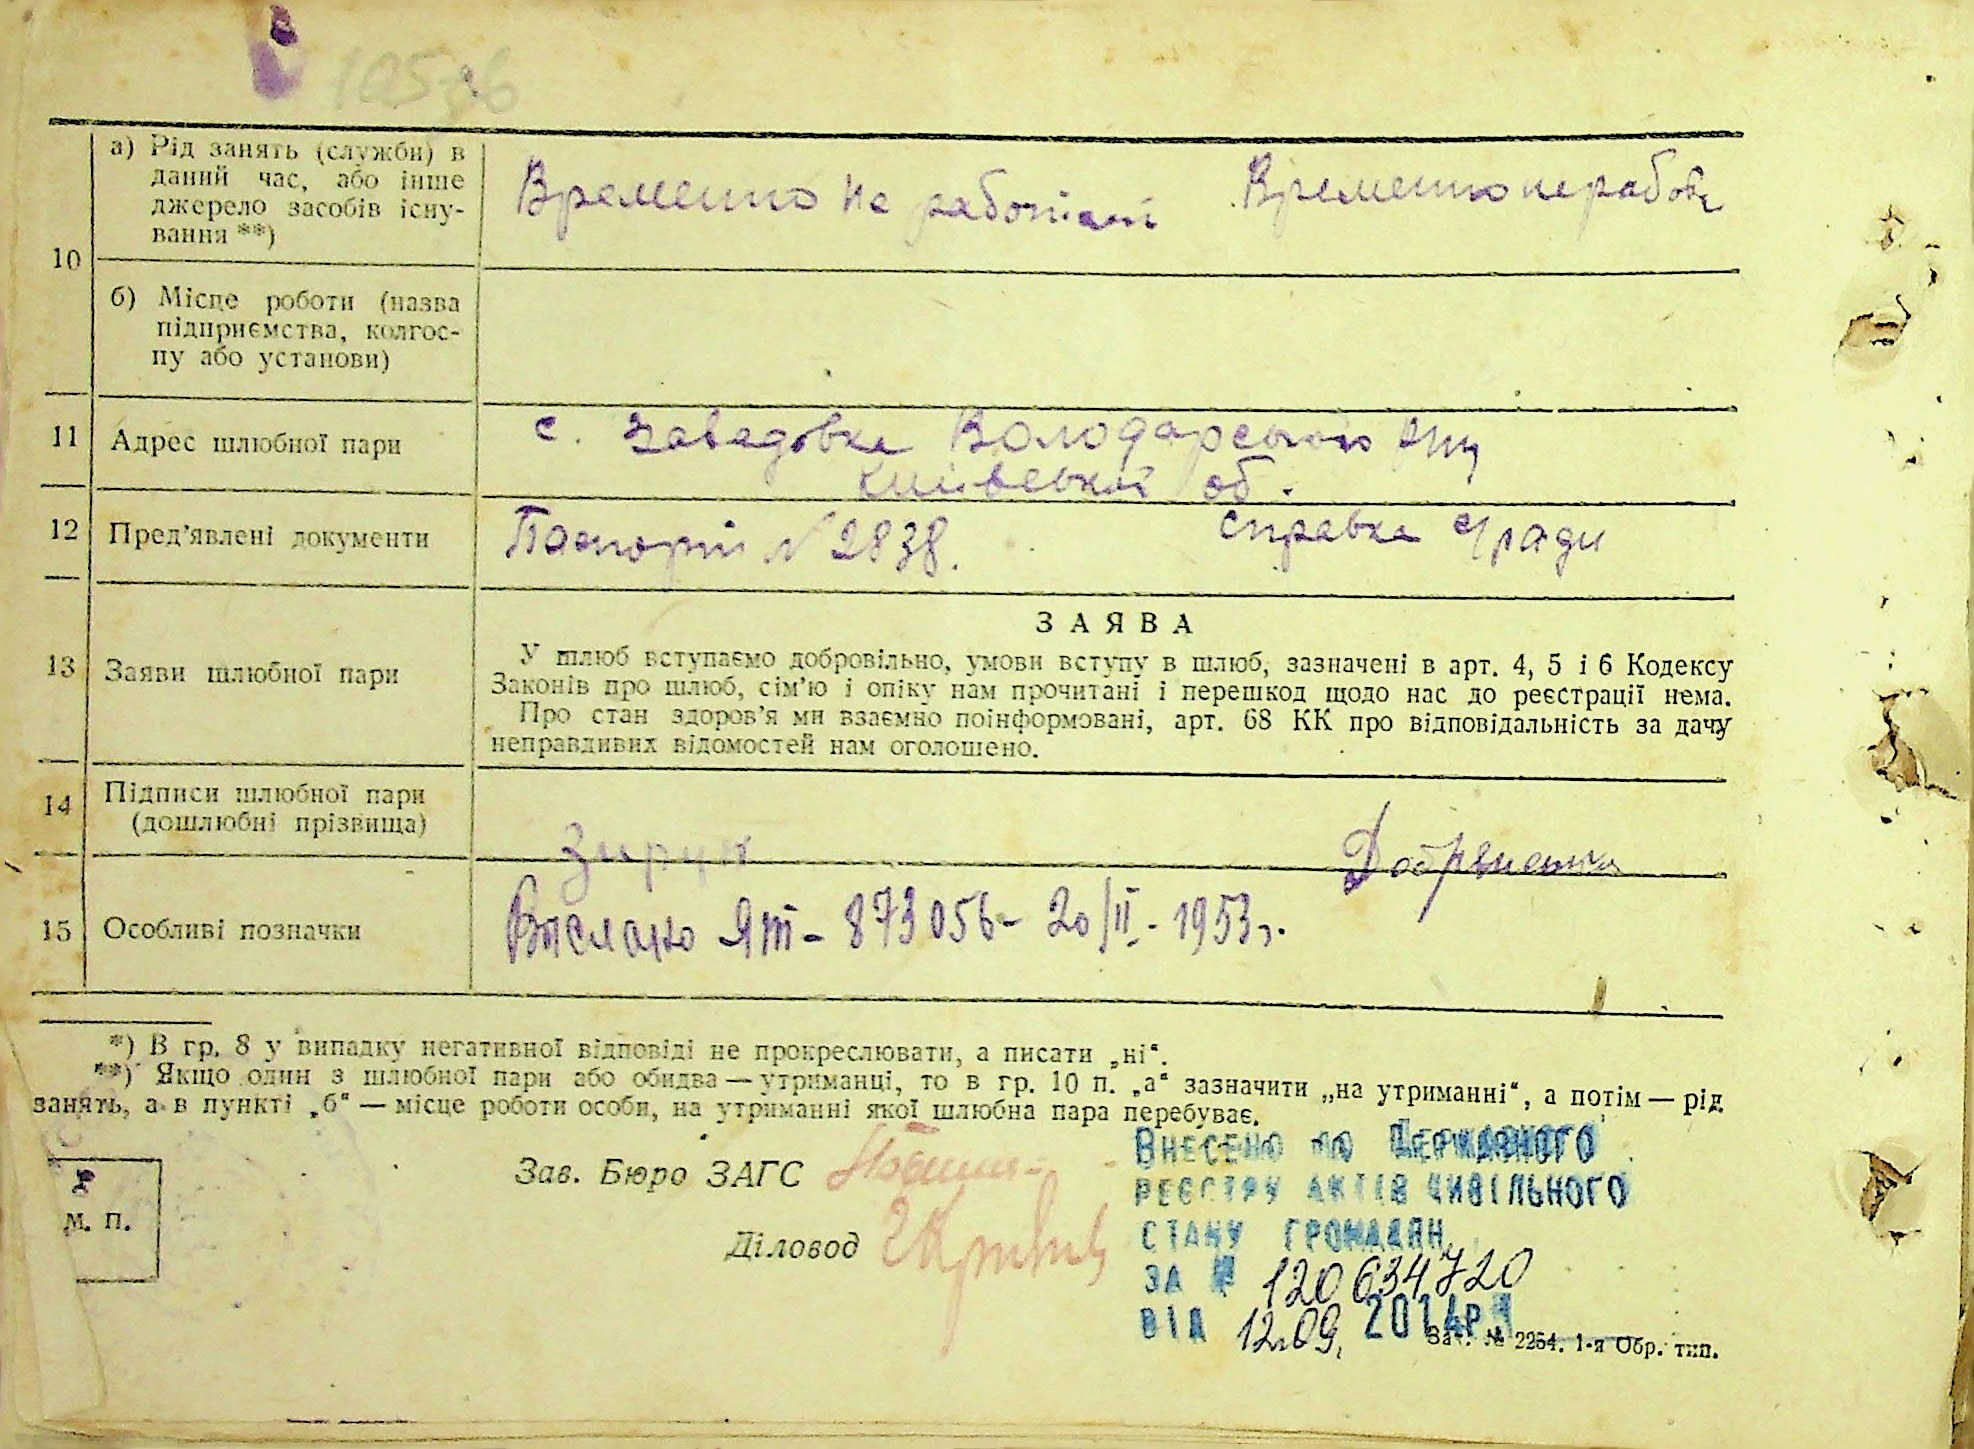 10536
10
а) Рід занять (служби) в
даний час, або інше
джерело засобів існу-
вання **)
Временно не работает Временно не работ
б) Місце роботи (назва
підприємства, колгос-
пу або установи)
11 Адрес шлюбної пари
с. Завадовка Володарського р-ну
Київської об.
12 Пред’явлені документи Паспорт № 2838. справка с/ради
13 Заяви шлюбної пари
ЗАЯВА
У шлюб вступаємо добровільно, умови вступу в шлюб, зазначені в арт. 4, 5 і 6 Кодексу
Законів про шлюб, сім’ю і опіку нам прочитані і перешкод щодо нас до реєстрації нема.
Про стан здоров’я ми взаємно поінформовані, арт. 68 КК про відповідальність за дачу
неправдивих відомостей нам оголошено.
14 Підписи шлюбної пари
(дошлюбні прізвища)
15 Особливі позначки Выслано ЯТ - 873056 - 20/II - 1953 г.
*) В гр. 8 у випадку негативної відповіді не прокреслювати, а писати „ні“.
**) Якщо один з шлюбної пари або обидва — утриманці, то в гр. 10 п. „а“ зазначити „на утриманні“, а потім — рід
занять, а в пункті „б“ — місце роботи особи, на утриманні якої шлюбна пара перебуває.
М. П.
Зав. Бюро ЗАГС
Діловод
Внесено до Державного
реєстру актів цивільного
стану громадян
за № 120634720
від 12.09. 2014р.
Зак. № 2264. 1-я Обр. тип.